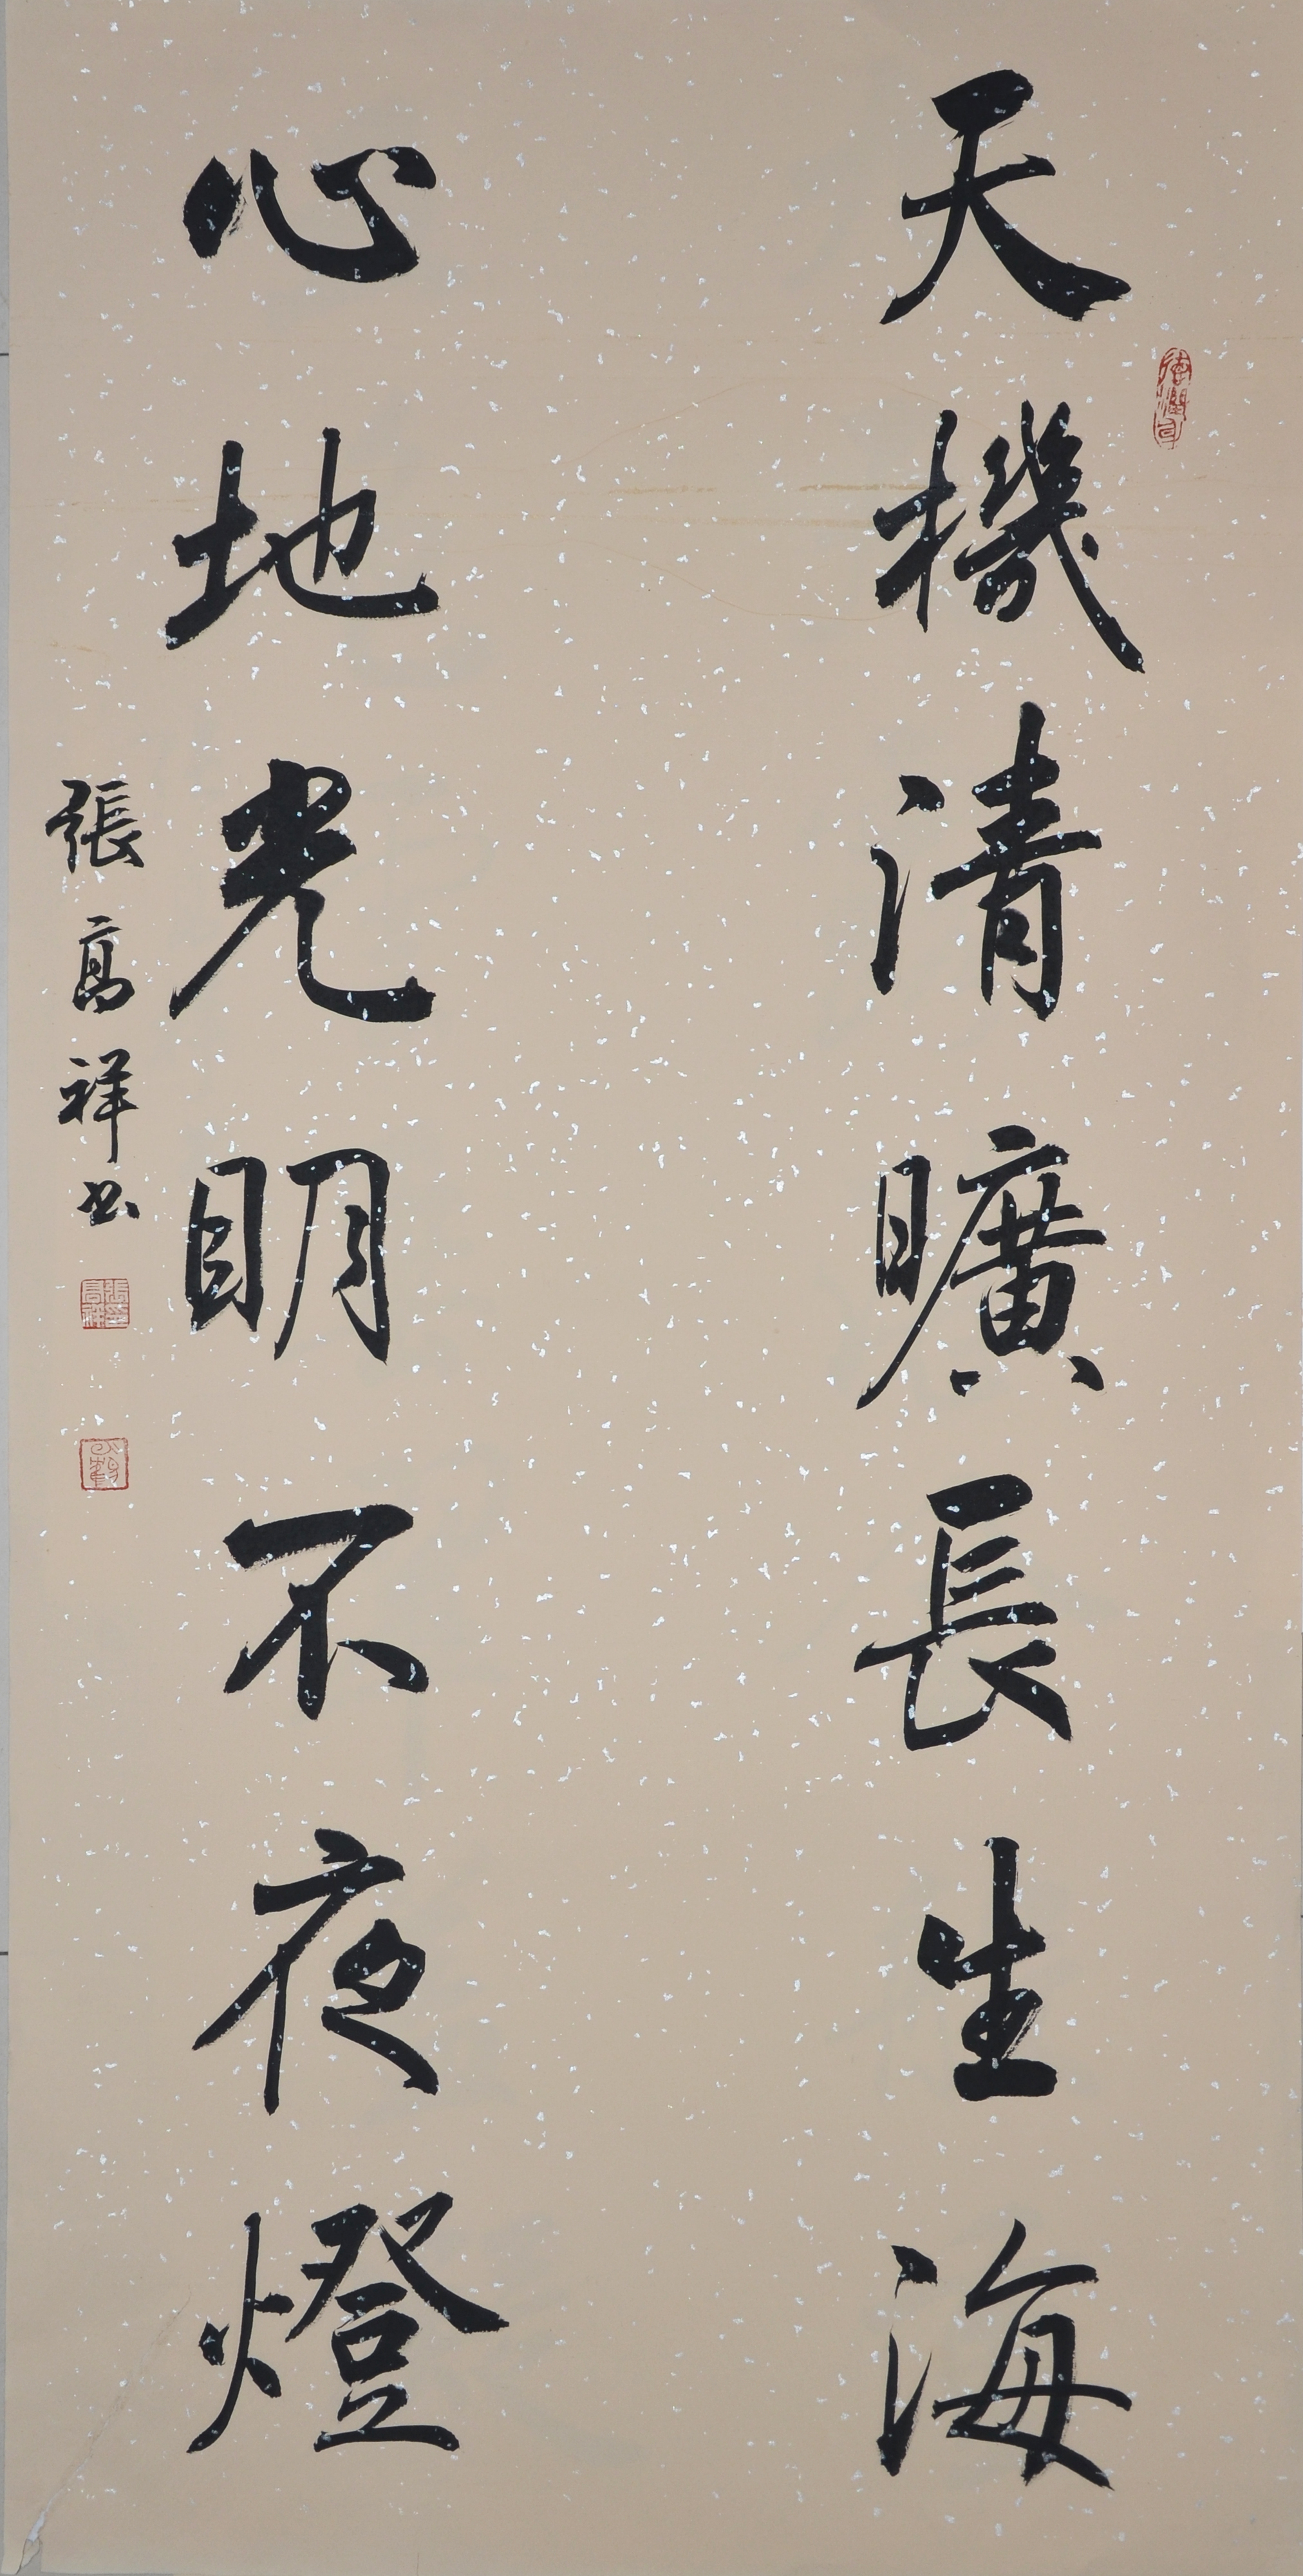 天機清曠長生海
心地光明不夜燈
張高祥书